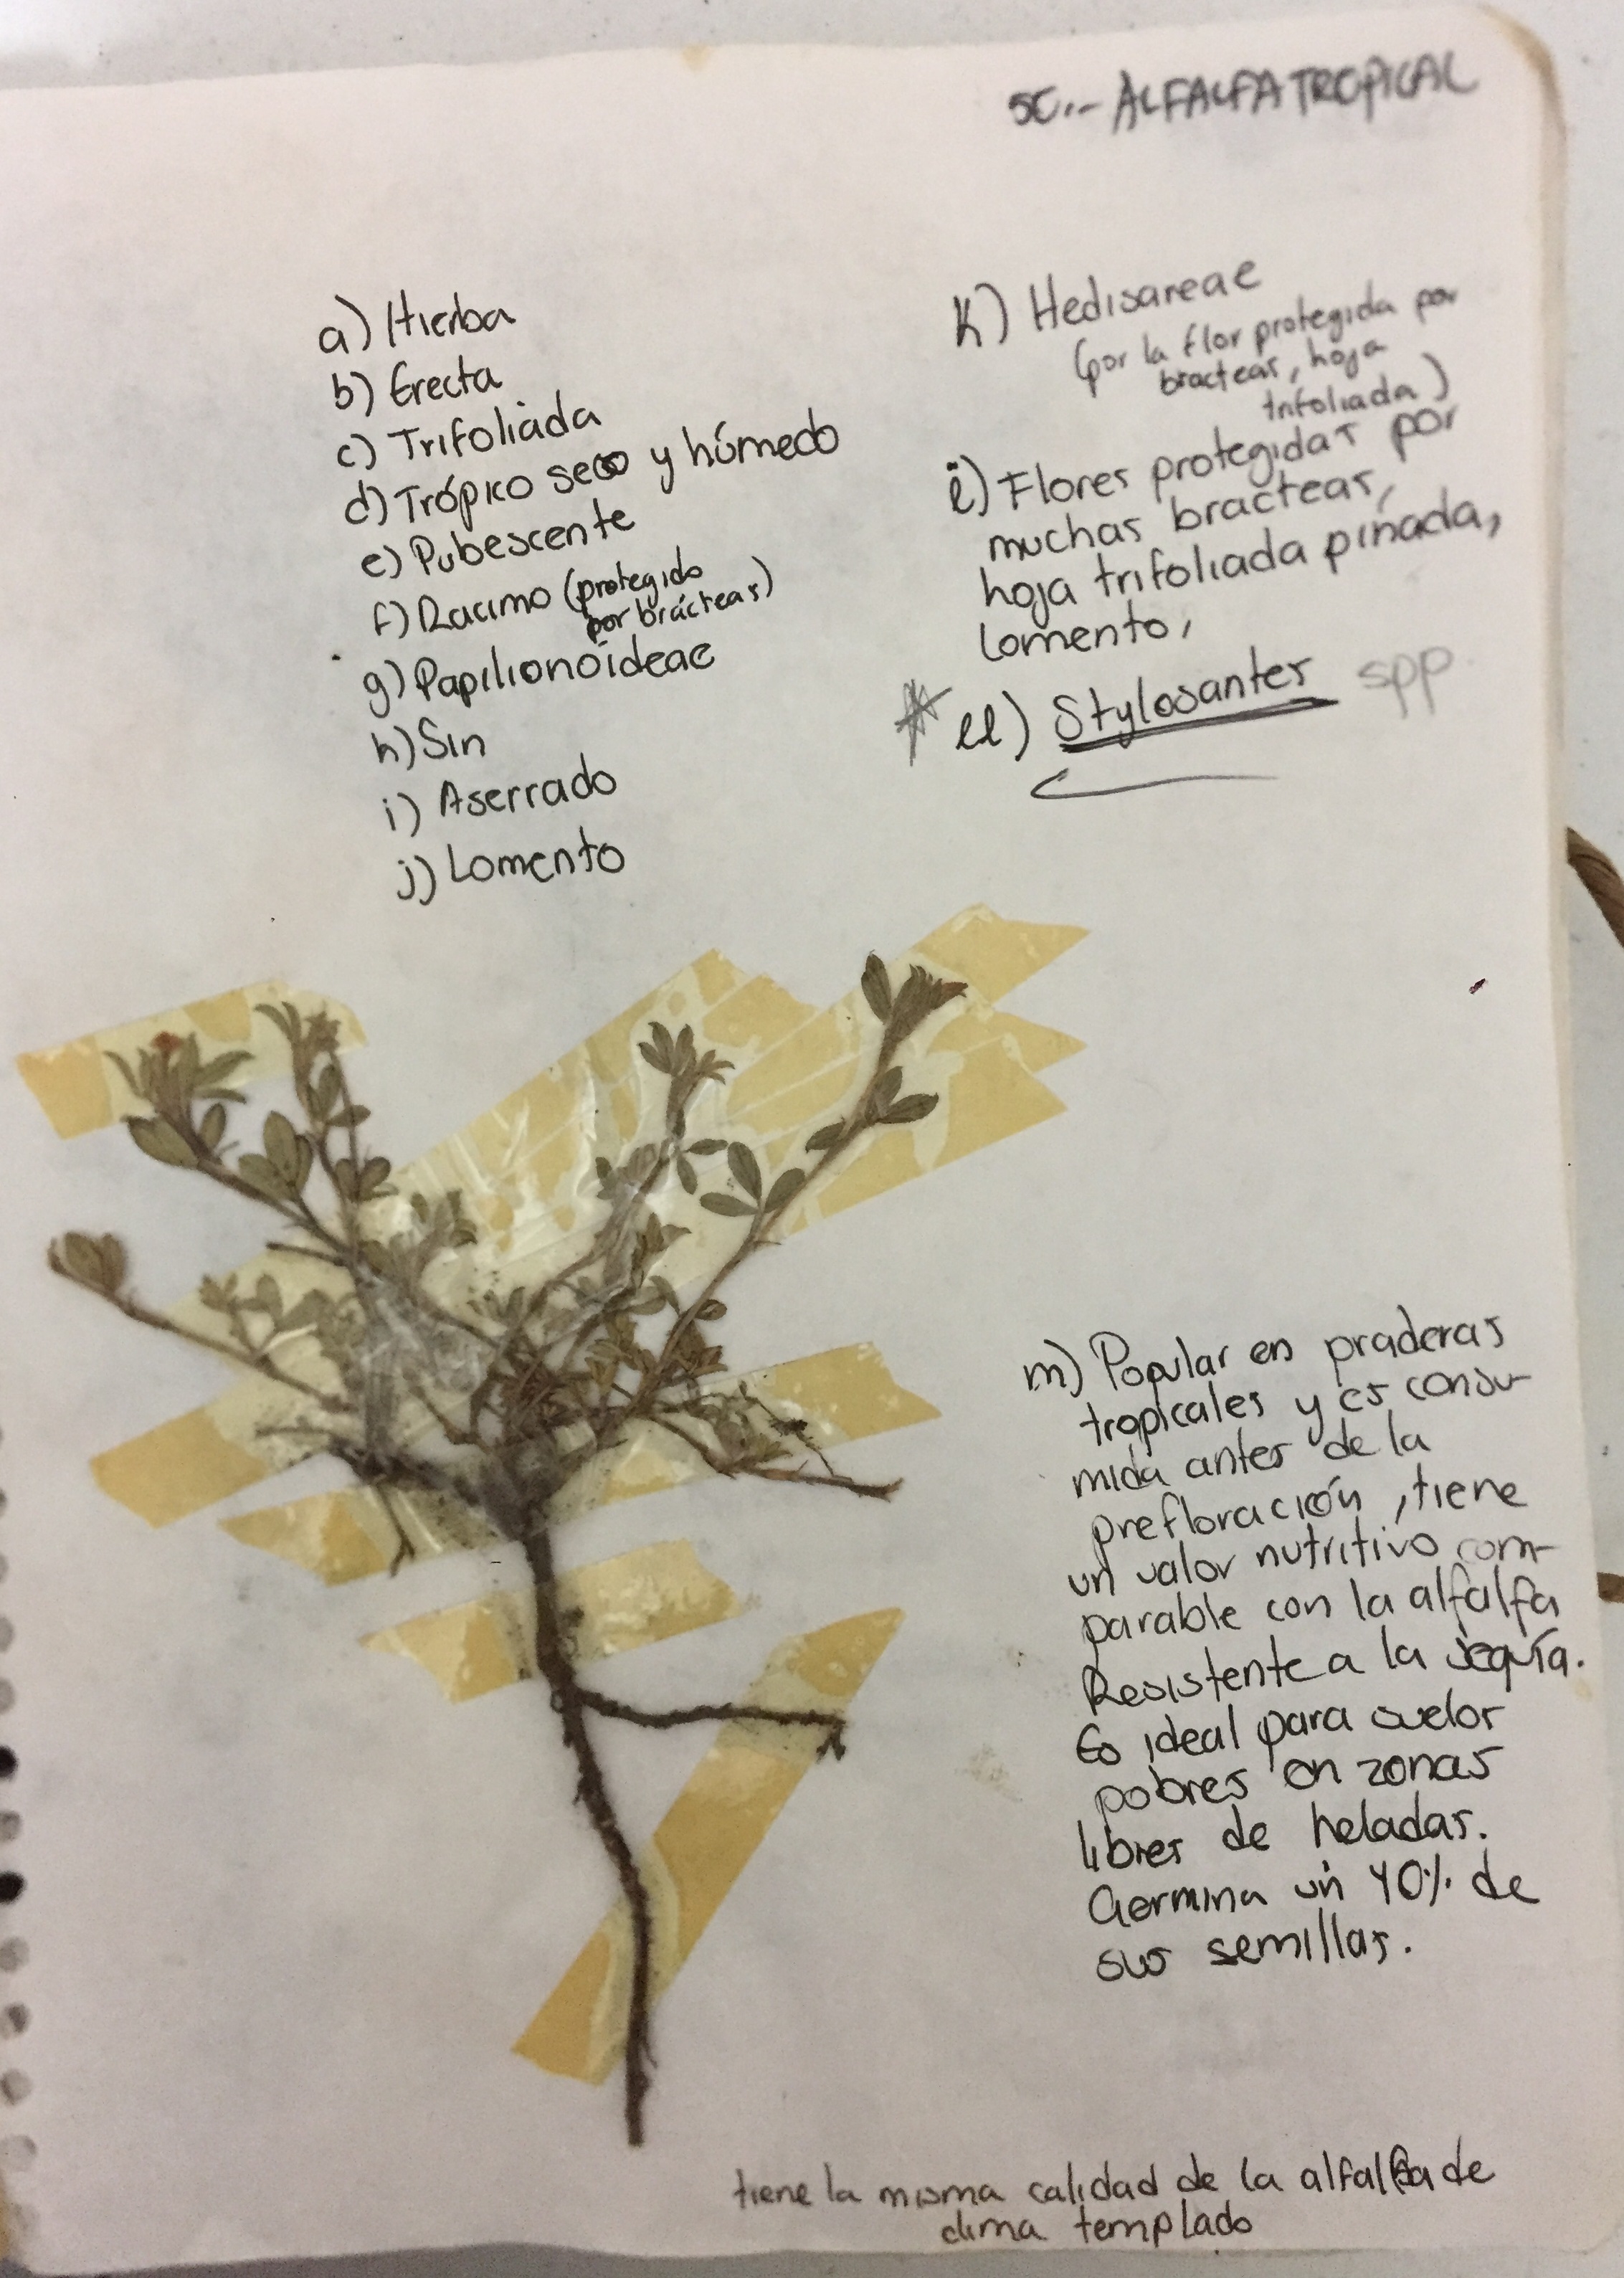 50.- ALFALFA TROPICAL
a) Hierba
b) Erecta
c) Trifoliada
d) Trópico seco y húmedo
e) Pubescente
f) Racimo (protegido
por brácteas)
g) Papilionoideae
h) Sin
i) Aserrado
j) Lomento
k) Hedisareae
(por la flor protegida por
bracteas, hoja
trifoliada)
l) Flores protegidas por
muchas bracteas,
hoja trifoliada pinada,
lomento,
* ll) Stylosantes spp.
m) Popular en praderas
tropicales y es consu-
mida antes de la
prefloración, tiene
un valor nutritivo com-
parable con la alfalfa
Resistente a la sequía.
Es ideal para suelos
pobres en zonas
libres de heladas.
Germina un 40% de
sus semillas.
tiene la misma calidad de la alfalfa de
clima templado